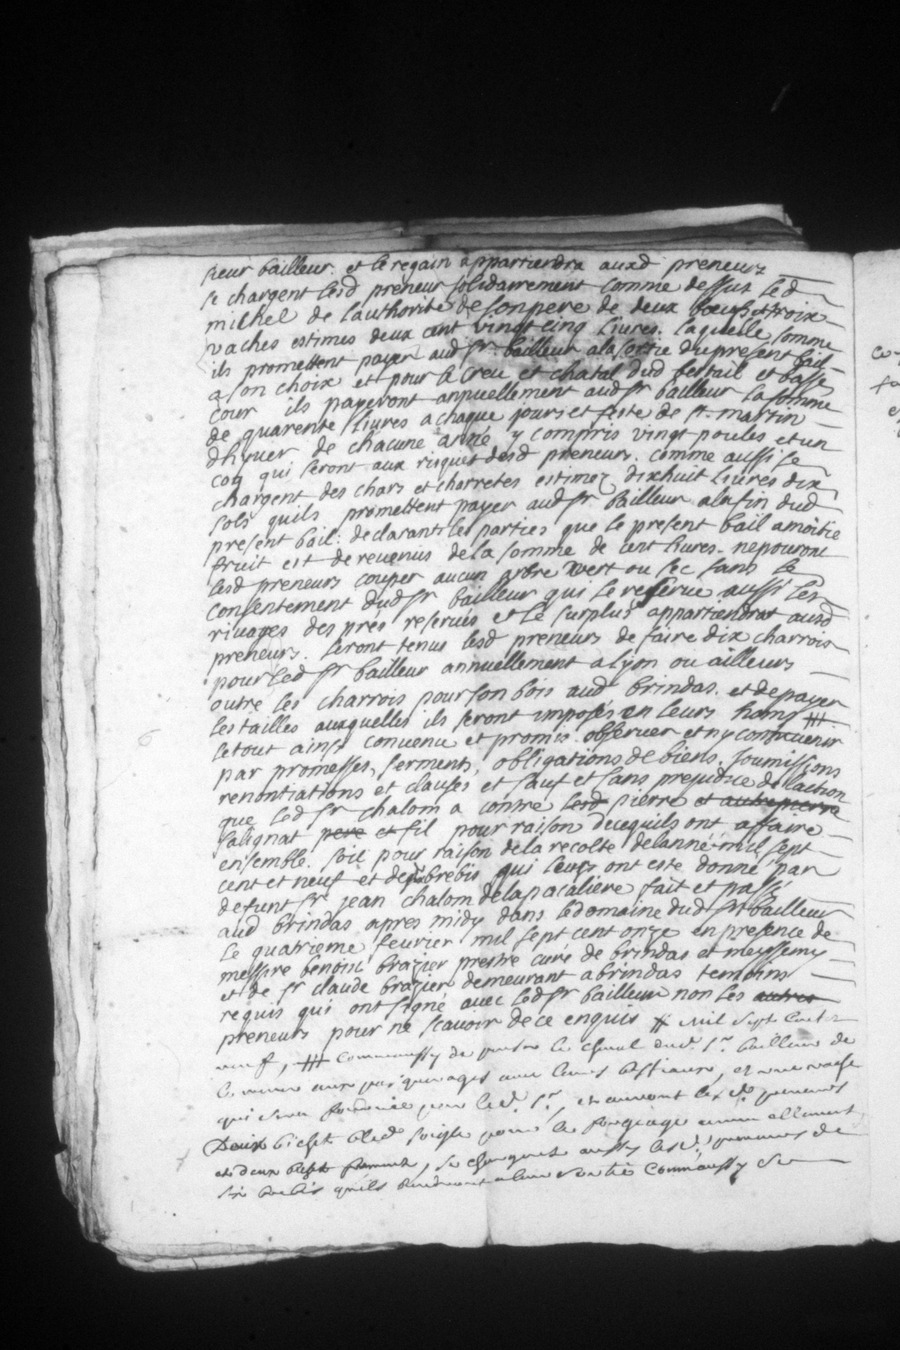 sieur bailleur. et le regain appartiendra auxd preneurs
se chargent lesd preneur solidairement comme dessus led
milhel de lauthorité de son pere de deux boeufs et troix
vaches estimes deux cent vingt cinq livres. laquelle somme
ils promettent payer aud sr. bailleur a la sortie du present bail
a son choix et pour le creu et chatal dud bestail et basse
cour ils payeront annuellement aud sr bailleur la somme
de quarente livres a chaque jours et feste de st. martin
dhyver de chacune anné y compris vingt poules et un
coq qui seront aux risques desd preneurs. comme aussi se
chargent des chars et charretes estimez dixhuit livres dix
sols quils promettent payer aud sr bailleur a la fin dud
present bail. declarant les parties que le present bail a moitie
fruit est de revenus de la somme de cent livres. ne pouront
lesd preneurs couper aucun arbre vert ou sec sans le
consentement dud sr bailleur qui se reserve aussi les
rivages des prés reservés et le surplus appartiendra ausd
preneurs. seront tenus lesd preneurs de faire dix charrois
pour led sr bailleur annuellement a lyon ou ailleurs
outre les charrois pour son bois aud brindas. et de payer
les tailles auxquelles ils seront imposés en leurs noms
le tout ainsy convenu et promis observer et ny contrevenir
par promesses, serments, obligations de biens. soumissions
renontiations et clauses et sauf et sans prejudice de laction
que led sr chalom a contre lesd pierre et autre pierre
salignat pere et fil pour raison de ce quils ont affaire
ensemble. soit pour raison de la recolte de lanné mil sept
cent et neuf et des brebis qui leurs ont esté donné par
defunt sr jean chalom de la pacaliere fait et passé
aud brindas apres midy dans le domaine dud sr bailleur
le quatrieme fevrier mil sept cent onze en presence de
messire benoist brazier prestre curé de brindas et meyssemy
et de sr claude brazier demeurant a brindas temoins
requis qui ont signé avec led sr bailleur non les autres
preneurs pour ne scavoir de ce enquis # mil sept cent
neuf, comme aussy de le cheval dud. sr. bailleur de
avec leurs bestiaux, et une vache
qui sera pour led. sr. et lesd. preneurs
Deux bichet bled soigle pour le annuellement
et deux, se chargent aussy lesd. preneurs de
six brebis quils rendront a leur sortie comme aussy se